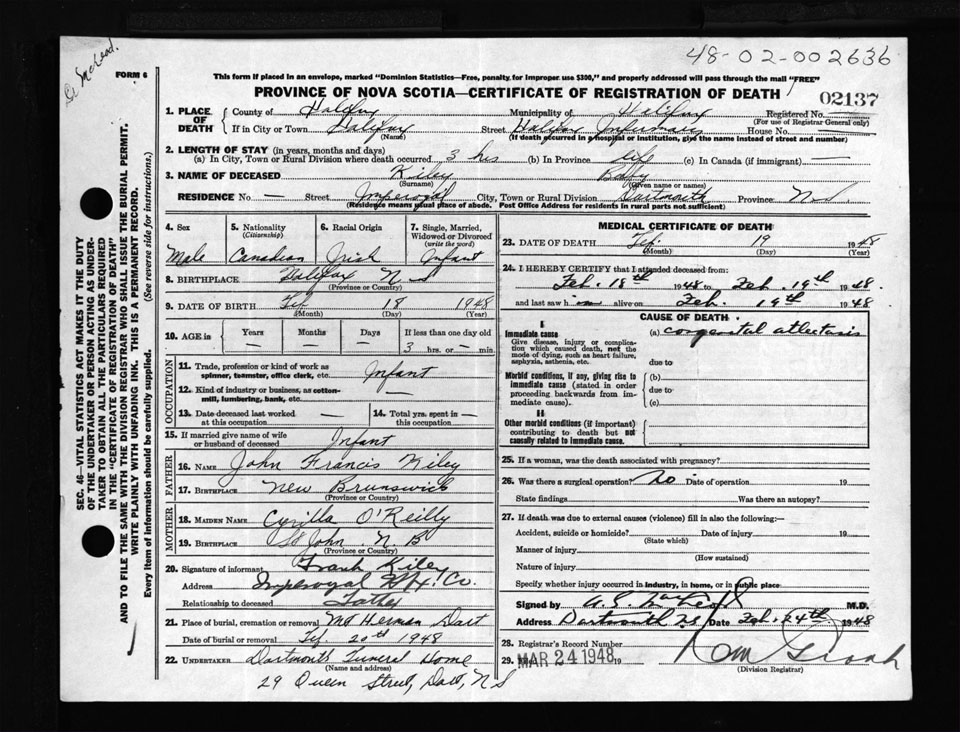 48-02-002636
Dr. McLeod.
FORM 6
This form if placed in an envelope, marked "Dominion Statistics—Free, penalty for improper use $300," and properly addressed will pass through the mail "FREE"
PROVINCE OF NOVA SCOTIA—CERTIFICATE OF REGISTRATION OF DEATH
02137
1. PLACE OF DEATH
County of Halifax Municipality of Halifax Registered No.
(For use of Registrar General only)
If in City or Town Halifax Street Halifax House No. —
(Name) (If death occurred in hospital or institution, give the name instead of street and number)
2. LENGTH OF STAY (in years, months and days)
(a) In City, Town or Rural Division where death occurred 3 hrs (b) In Province life (c) In Canada (if immigrant) —
3. NAME OF DECEASED Kiley Baby
(Surname) (Given name or names)
RESIDENCE No — Street Imperoyal City, Town or Rural Division Dartmouth Province N.S
(Residence means usual place of abode. Post Office Address for residents in rural parts not sufficient)
4. Sex Male
5. Nationality (Citizenship) Canadian
6. Racial Origin Irish
7. Single, Married, Widowed or Divorced (write the word) Infant
8. BIRTHPLACE Halifax N S
(Province or Country)
9. DATE OF BIRTH Feb 18 1948
(Month) (Day) (Year)
10. AGE in Years — Months — Days — If less than one day old 3 hrs. or — min.
OCCUPATION
11. Trade, profession or kind of work as spinner, teamster, office clerk, etc. Infant
12. Kind of industry or business, as cotton-mill, lumbering, bank, etc. —
13. Date deceased last worked at this occupation —
14. Total yrs. spent in this occupation —
15. If married give name of wife or husband of deceased Infant
FATHER
16. NAME John Francis Kiley
17. BIRTHPLACE New Brunswick
(Province or Country)
MOTHER
18. MAIDEN NAME Cyrilla O'Reilly
19. BIRTHPLACE St John N.B
(Province or Country)
20. Signature of informant Frank Kiley
Address Imperoyal Hfx. Co.
Relationship to deceased Father
21. Place of burial, cremation or removal Mt Herman Dart
Date of burial or removal Feb 20th 1948
22. UNDERTAKER Dartmouth Funeral Home
(Name and address)
29 Queen Street, Dart, N S
MEDICAL CERTIFICATE OF DEATH
23. DATE OF DEATH Feb. 19 1948
(Month) (Day) (Year)
24. I HEREBY CERTIFY that I attended deceased from:
Feb. 18th 1948 to Feb. 19th 1948.
and last saw h im alive on Feb. 19th 1948
CAUSE OF DEATH
I
Immediate cause (a) congenital atlectasis
Give disease, injury or complication which caused death, not the mode of dying, such as heart failure, asphyxia, asthenia, etc.
due to
Morbid conditions, if any, giving rise to immediate cause (stated in order proceeding backwards from immediate cause).
(b)
due to
(c)
II
Other morbid conditions (if important) contributing to death but not causally related to immediate cause.
25. If a woman, was the death associated with pregnancy?
26. Was there a surgical operation? No Date of operation 19
State findings Was there an autopsy?
27. If death was due to external causes (violence) fill in also the following:—
Accident, suicide or homicide? Date of injury 19
(State which)
Manner of injury
(How sustained)
Nature of injury
Specify whether injury occurred in industry, in home, or in public place
Signed by M.D.
Address Dartmouth N.S Date Feb. 24th 1948
28. Registrar's Record Number
29. MAR 24 1948 19
(Division Registrar)
SEC. 46—VITAL STATISTICS ACT MAKES IT THE DUTY
OF THE UNDERTAKER OR PERSON ACTING AS UNDER-
TAKER TO OBTAIN ALL THE PARTICULARS REQUIRED
IN THE "CERTIFICATE OF REGISTRATION OF DEATH"
AND TO FILE THE SAME WITH THE DIVISION REGISTRAR WHO SHALL ISSUE THE BURIAL PERMIT.
WRITE PLAINLY WITH UNFADING INK. THIS IS A PERMANENT RECORD.
Every item of information should be carefully supplied. (See reverse side for instructions.)